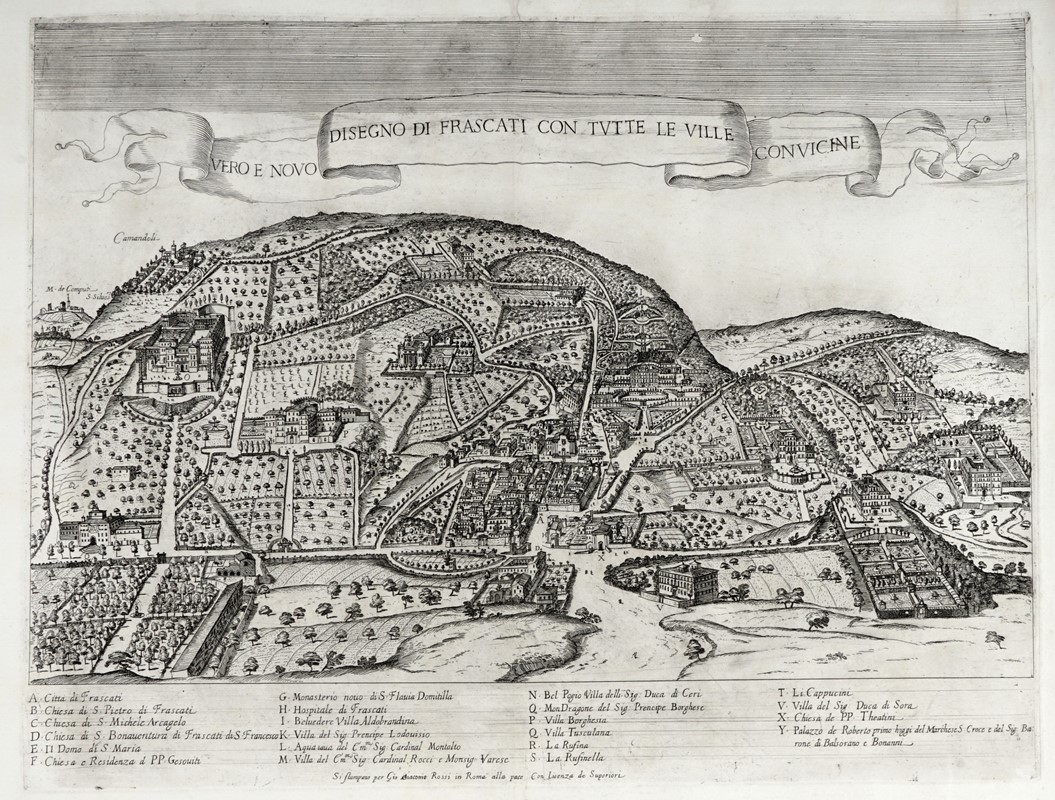 VERO E NOVO DISEGNO DI FRASCATI CON TVTTE LE VILLE CONVICINE
Camandoli
M. de Compiti
S. Siluestro
A. Citta di Frascati
B. Chiesa di S. Pietro di Frascati
C. Chiesa di S. Michele Arcagelo
D. Chiesa di S. Bonauentura di Frascati di S. Francesco
E. Il Domo di S. Maria
F. Chiesa e Residenza d PP. Gesoviti
G. Monasterio novo di S. Flauia Domitilla
H. Hospitale di Frascati
I. Beluedere Villa Aldobrandina
K. Villa del Sig. Prencipe Lodouisio
L. Aquauiua del Em.mo Sig. Cardinal Montalto
M. Villa del Em.mo Sig. Cardinal Rocci e Monsig. Varese
N. Bel Pogio Villa delli Sig. Duca di Ceri
Q. Mon Dragone del Sig. Prencipe Borghese
P. Villa Borghesia
Q. Villa Tusculana
R. La Rufina
S. La Rufinella
T. Li Cappucini
V. Villa del Sig. Duca di Sora
X. Chiesa de PP. Theatini
Y. Palazzo de Roberto primo hoggi del Marchese S. Croce e del Sig. Ba=
rone di Balsorano e Bonanni
Si stampano per Gio. Giacomo Rossi in Roma alla pace Con Licenza de Superiori